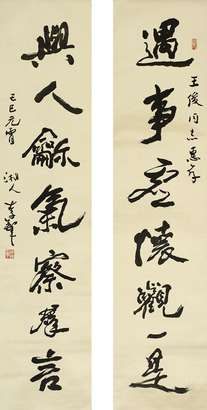 遇事虚懷觀一是
王俊同志惠存
與人龢氣察群言
己巳元宵
湘人李鐸